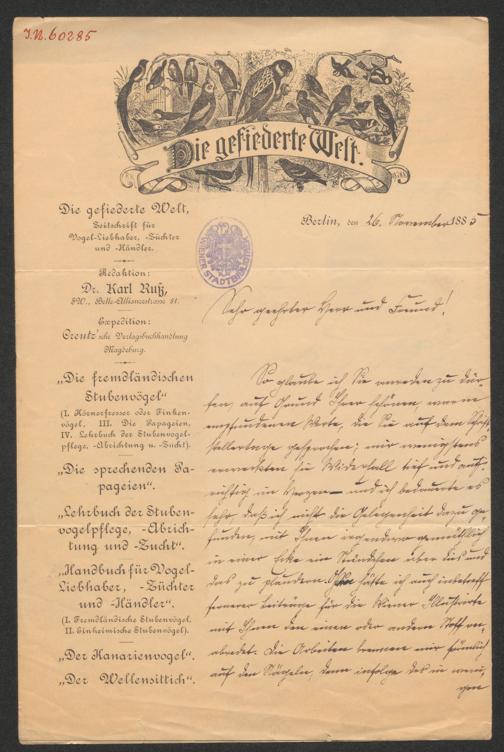 J.N. 60285
Die gefiederte Welt.
Die gefiederte Welt,
Zeitschrift für
Vogel-Liebhaber, -Züchter
und -Händler.
Redaktion:
Dr. Karl Ruß,
SW., Belle-Alliancestrasse 81.
Expedition:
Creutz'sche Verlagsbuchhandlung
Magdeburg.
„Die fremdländischen
Stubenvögel"
(I. Körnerfresser oder Finken-
vögel, III. Die Papageien,
IV. Lehrbuch der Stubenvogel-
pflege, -Abrichtung u. -Zucht).
„Die sprechenden Pa-
pageien".
„Lehrbuch der Stuben-
vogelpflege, -Abrich-
tung und -Zucht".
„Handbuch für Vogel-
Liebhaber, -Züchter
und -Händler".
(I. Fremdländische Stubenvögel,
II. Einheimische Stubenvögel).
„Der Kanarienvogel".
„Der Wellensittich".
Berlin, den 26. November 1885
WIENER STADTBIBL
Sehr geehrter Herr und Freund!
So glaube ich Sie anreden zu dür-
fen, auf Grund Ihrer schönen, warm
empfundenen Worte, die Sie auf dem Schrift-
stellertage gesprochen; mir wenigstens
erweckten sie Widerhall tief und auf-
richtig im Herzen und ich bedauerte es
sehr, daß ich nicht die Gelegenheit dazu ge-
funden, mit Ihnen irgendwo gemüthlich
in einer Ecke ein Stündchen über dies und
das zu plaudern. hätte ich auch inbetreff
fernerer Beiträge für die Wiener Illustrirte
mit Ihnen den einen oder andern Stoff ver-
abredet. Die Arbeiten brennen mir förmlich
auf den Nägeln, denn infolge des in
gen